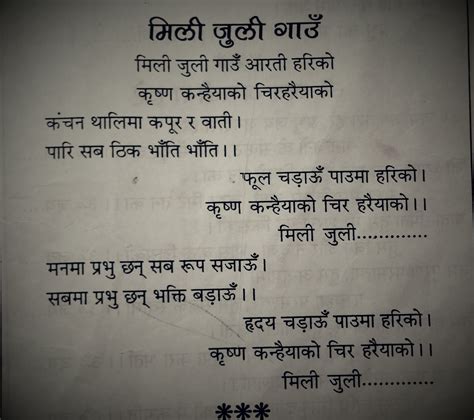 मिली जुली गाउँ
मिली जुली गाउँ आरती हरिको
कृष्ण कन्हैयाको चिरहरैयाको
कंचन थालिमा कपूर र वाती।
पारि सब ठिक भाँति भाँति।।
फूल चड़ाऊँ पाउमा हरिको।
कृष्ण कन्हैयाको चिर हरैयाको।
मिली जुली.............
मनमा प्रभु छन् सब रूप सजाऊँ।
सबमा प्रभु छन् भक्ति बड़ाऊँ।।
हृदय चड़ाऊँ पाउमा हरिको।
कृष्ण कन्हैयाको चिर हरैयाको।।
मिली जुली.............
***